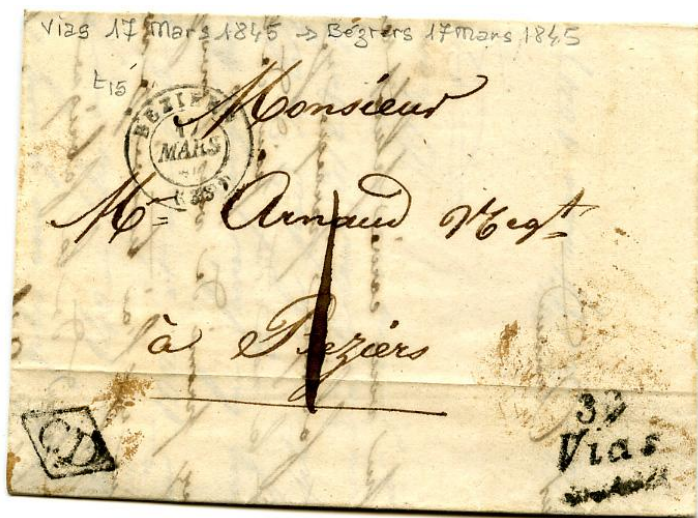 Vias 17 Mars 1845 → Béziers 17 Mars 1845
t15
BEZIERS
17
MARS
Monsieur
Mr Arnaud Negt
1
à Beziers
CD
32
Vias